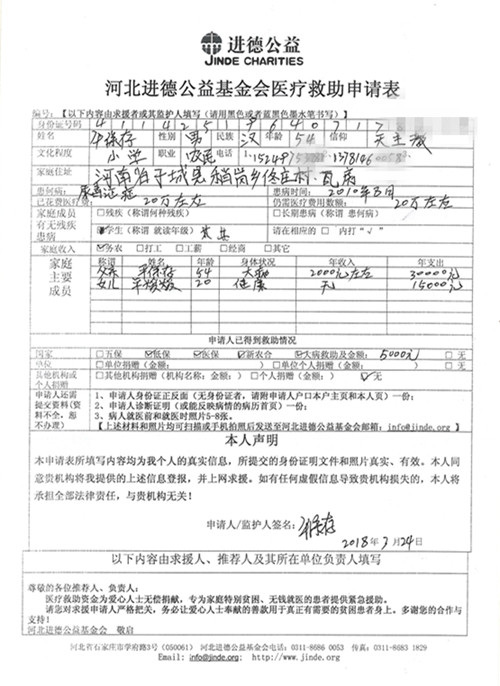 进德公益
JINDE CHARITIES
河北进德公益基金会医疗救助申请表
编号：【以下内容由求援者或其监护人填写（请用黑色或者蓝黑色墨水笔书写）】
身份证号码
性别 男 民族 汉 年龄 54 信仰 天主教
文化程度 小学 职业 农民 电话
家庭住址 河南省 城县稻岗乡佟庄村 瓦房
患何病： 患病时间：2010年3月
已花费医疗费： 20万左右 仍需医疗费用数额： 20万左右
家庭成员有无残疾患病
□残疾（称谓何种残疾） □长期患病（称谓 患何病）
学生（称谓 就读年级） 请在相应的 □ 内打“√”
家庭收入 ☑务农 □打工 □工薪 □经商 □其它
家庭主要成员
称谓 姓名 年龄 身体状况 年收入 年支出
54 大病 2000元左右 30000元
女儿 20 健康 无 15000元
申请人已得到救助情况
国家 □五保 ☑低保 ☑医保 ☑新农合 ☑大病救助及金额： 5000元 □ 无
单位 □单位捐赠（金额： ） □单位个人捐赠（金额： ） □ 无
其他机构或个人捐赠 □其他机构捐赠（机构名称：金额： ） □个人捐赠（金额： ） ☑无
申请人还需提交资料(资料不全，恕不办理)
1、申请人身份证正反面（无身份证者，请附申请人户口本户主页和本人页）一份；
2、申请人诊断证明（或能反映病情的病历首页）一份；
3、病人就医前和就医时照片5-8张。
【上述材料和照片均可扫描或手机拍照后发送至河北进德公益基金会邮箱：info@jinde.org】
本人声明
本申请表所填写内容均为我个人的真实信息，所提交的身份证明文件和照片真实、有效。本人同
意贵机构将我提供的上述信息登报，并上网求援。如有任何虚假信息导致贵机构损失的，本人将
承担全部法律责任，与贵机构无关！
申请人/监护人签名：
2018年3月24日
以下内容由求援人、推荐人及其所在单位负责人填写
尊敬的各位推荐人、负责人：
医疗救助资金为爱心人士无偿捐献，专为家庭特别贫困、无钱就医的患者提供紧急援助。
请您对求援申请人严格把关，务必让爱心人士奉献的善款用于真正有需要的贫困患者身上。多谢您的合作与
支持！
河北进德公益基金会 敬启
河北省石家庄市学府路3号（050061）河北进德公益基金会电话：0311-8686 0053 传真：0311-8683 1829
Email: info@jinde.org; http://www.jinde.org